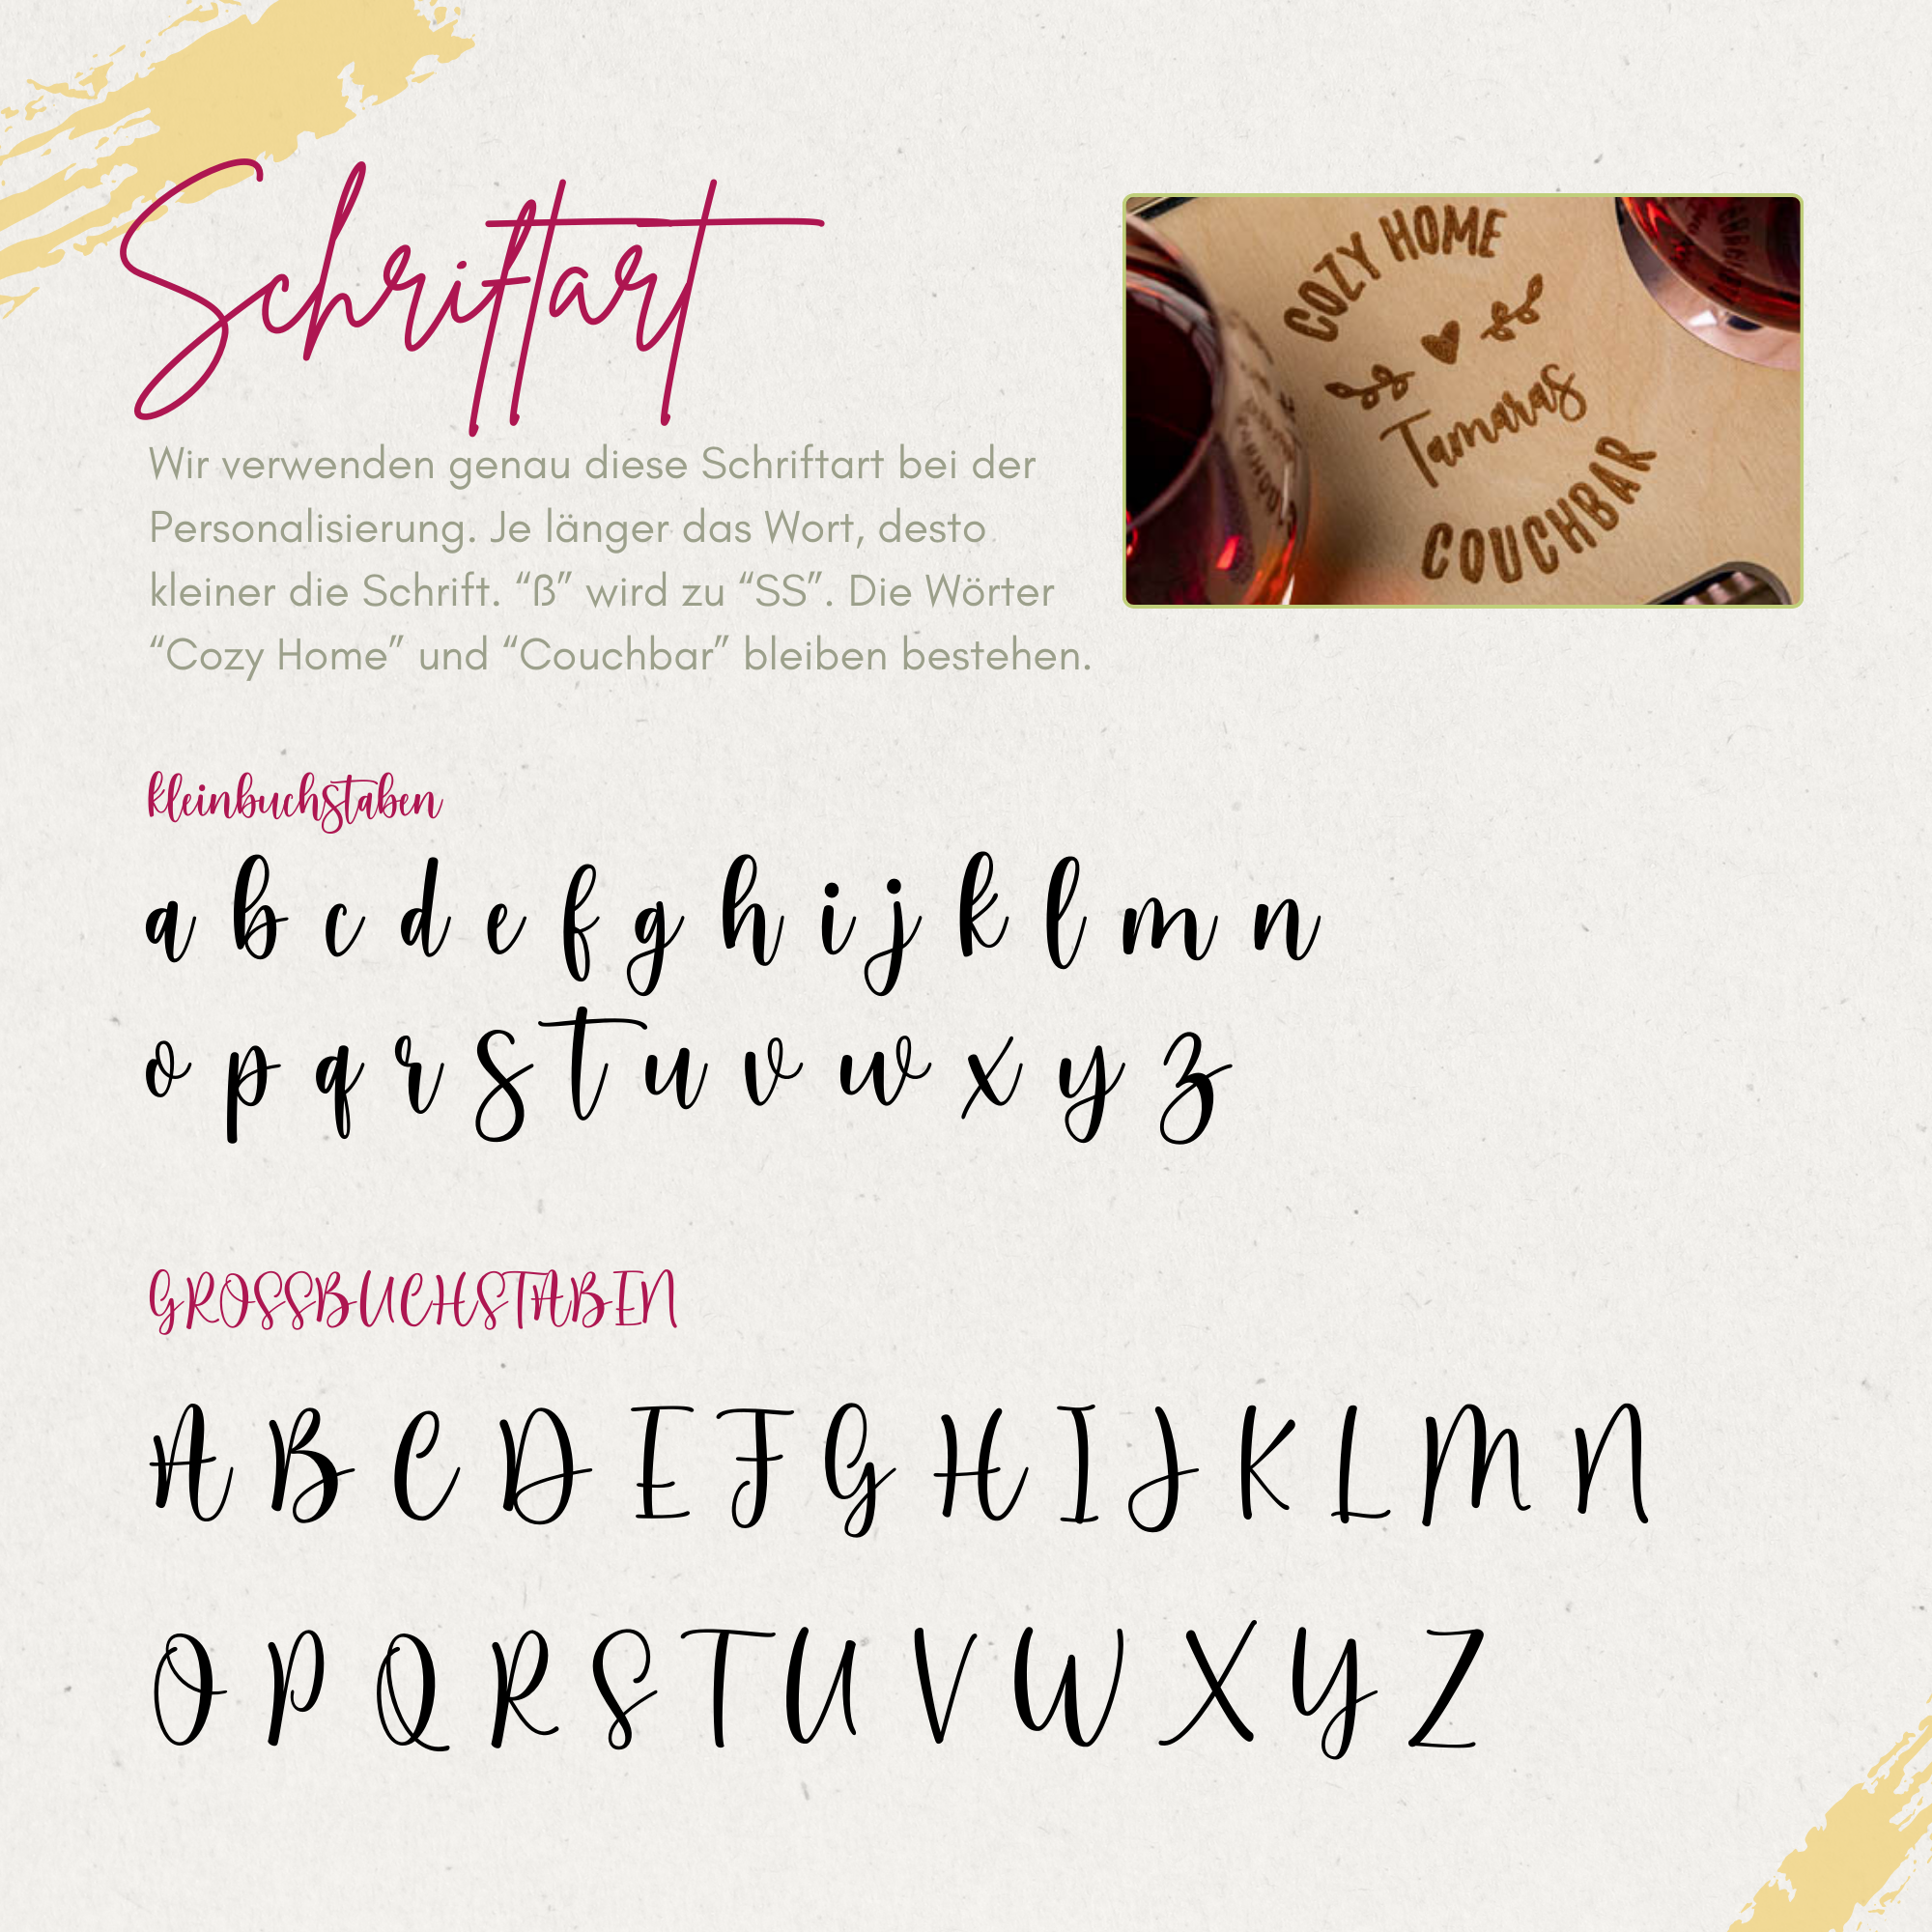 Schriftart
Wir verwenden genau diese Schriftart bei der
Personalisierung. Je länger das Wort, desto
kleiner die Schrift. “ß” wird zu “SS”. Die Wörter
“Cozy Home” und “Couchbar” bleiben bestehen.
COZY HOME
Tamaras
COUCHBAR
kleinbuchstaben
a b c d e f g h i j k l m n
o p q r s t u v w x y z
GROSSBUCHSTABEN
A B C D E F G H I J K L M N
O P Q R S T U V W X Y Z